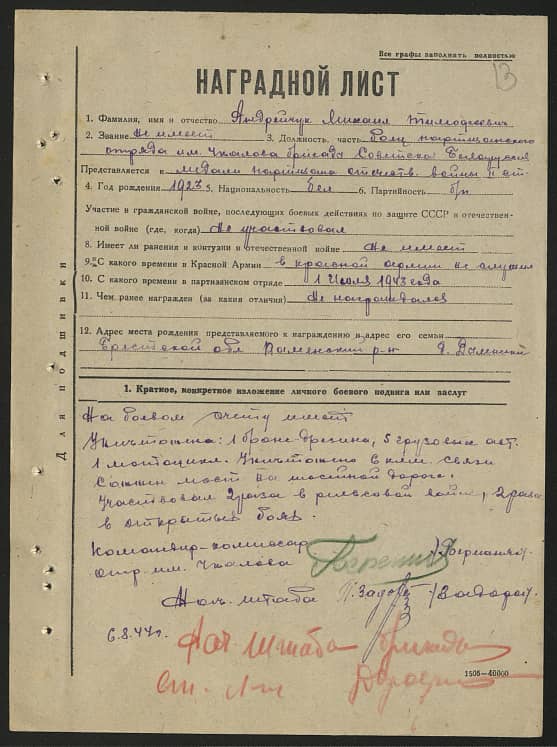 Все графы заполнять полностью
13
НАГРАДНОЙ ЛИСТ
1. Фамилия, имя и отчество Андрейчук Михаил Тимофеевич
2. Звание не имеет 3. Должность, часть боец партизанского
отряда им. Чкалова бригада Советская Белоруссия
Представляется к медали партизана отечеств. войны II ст.
4. Год рождения 1923 5. Национальность бел 6. Партийность б/п
Участие в гражданской войне, последующих боевых действиях по защите СССР и отечествен-
ной войне (где, когда) не участвовал
8. Имеет ли ранения и контузии в отечественной войне не имеет
9. С какого времени в Красной Армии в красной армии не служил
10. С какого времени в партизанском отряде 1 Июля 1943 года
11. Чем ранее награжден (за какия отличия) не награждался
12. Адрес места рождения представляемого к награждению и адрес его семьи
Брестской обл р-н д.
Для подшивки
1. Краткое, конкретное изложение личного боевого подвига или заслуг
На боевом счету имеет
Уничтожена: 1 броне-дрезина, 5 грузовых авт.
1 мотоцикл. Уничтожено 6 клм. связи
Сожжен мост на шосейной дороге.
Участвовал 2 раза в рельсовой войне, 2 раза
в открытых боях.
Командир-комиссар
отр. им. Чкалова
Нач. штаба
6.8.44г.
Нач штаба бригады
ст. л-т
1505—40000